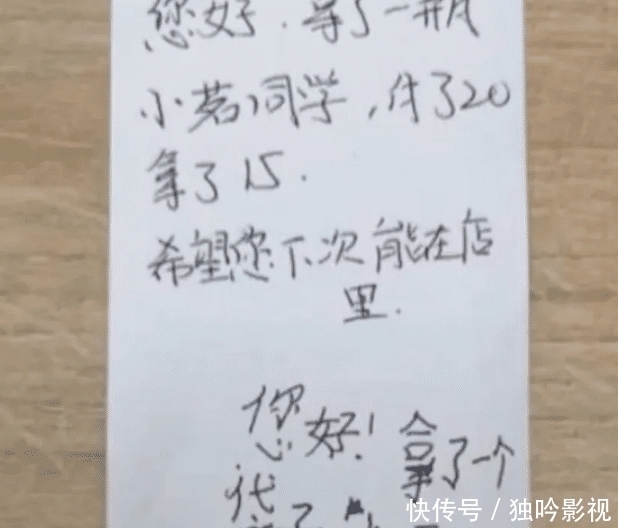 您好.拿了一瓶
小茗同学,付了20
拿了15.
希望您下次能在店
里.
您好!拿了一个
代
快传号/独吟影视